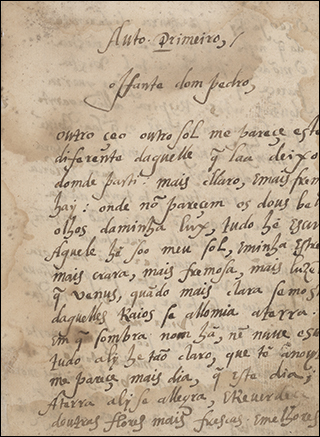 Auto. Primeiro,
Iffante dom pedro,
outro ceo outro sol me pareçe este
diferente daquelle q̃ laa deixo
domde parti: mais claro, emais frem
hay: onde nõ pareçem os dous be
olhos daminha lux, tudo hé escur
Aquele hé soo meu sol, eminha estre
mais crara, mais fremosa, mais luze
q̃ venus, quãdo mais clara se mos
daquelles Raios se allomia aterra.
Em q̃ sombra nom há, nẽ nuue esc
tudo aly hé tão claro, que té
me pareça mais dia, q̃ este dia;
Aterra aly se allegra, e Reuerde
doutras flores mais frescas. emelhores